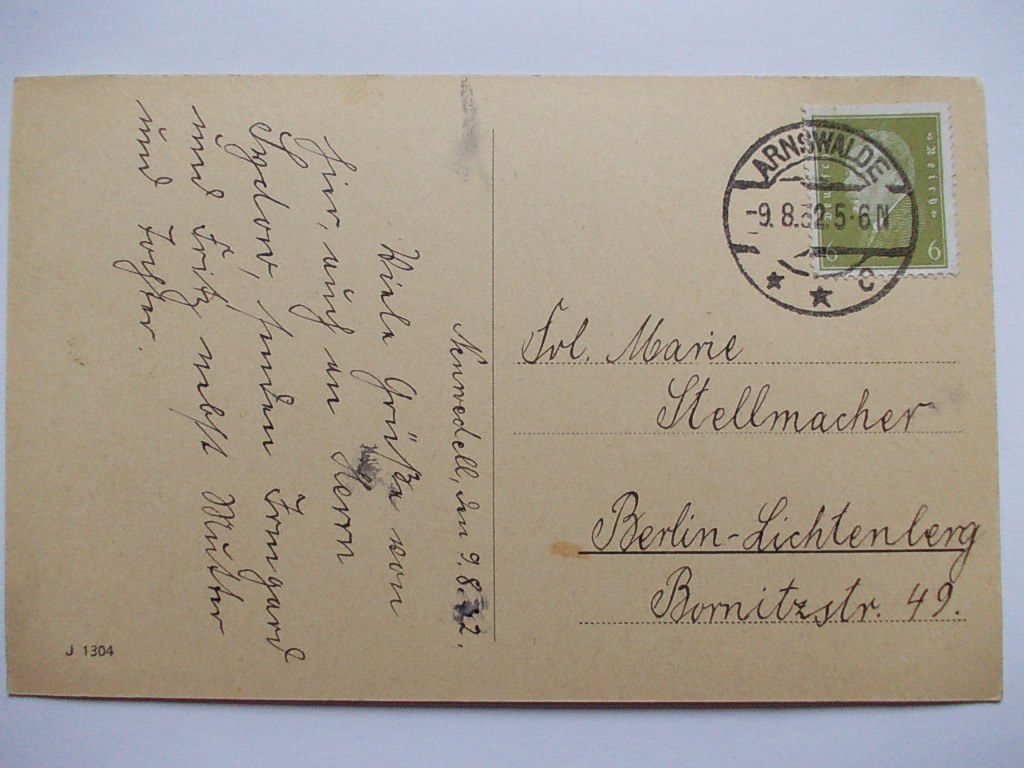 Neuwedell, den 9.8.32.
Viele Grüße von
hier, auch an Herrn
Sydow, senden Irmgard
und Fritz nebst Mutter
und Tochter.
Frl. Marie
Stellmacher
Berlin-Lichtenberg
Bornitzstr. 49.
ARNSWALDE
-9.8.32.5-6 N
c
6 6
J 1304